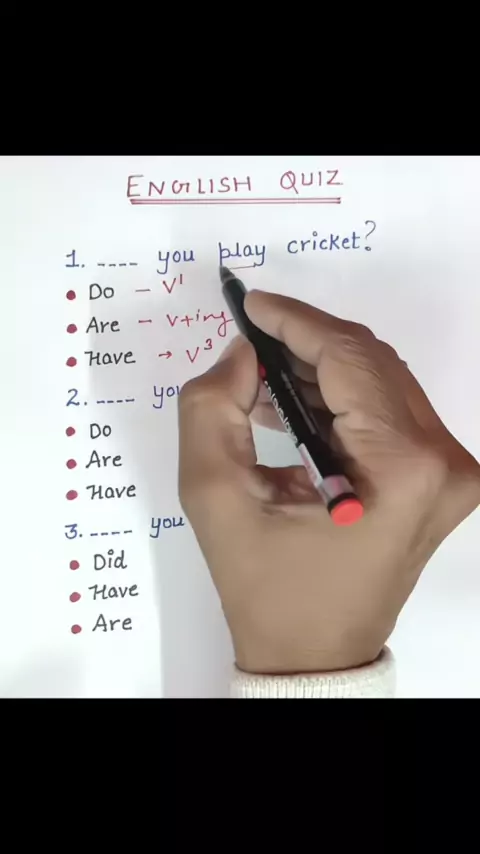 ENGLISH QUIZ
1. ---- you play cricket?
• Do – V1
• Are – V+ing
• Have → V3
2. ---- you
• Do
• Are
• Have
3. ---- you
• Did
• Have
• Are